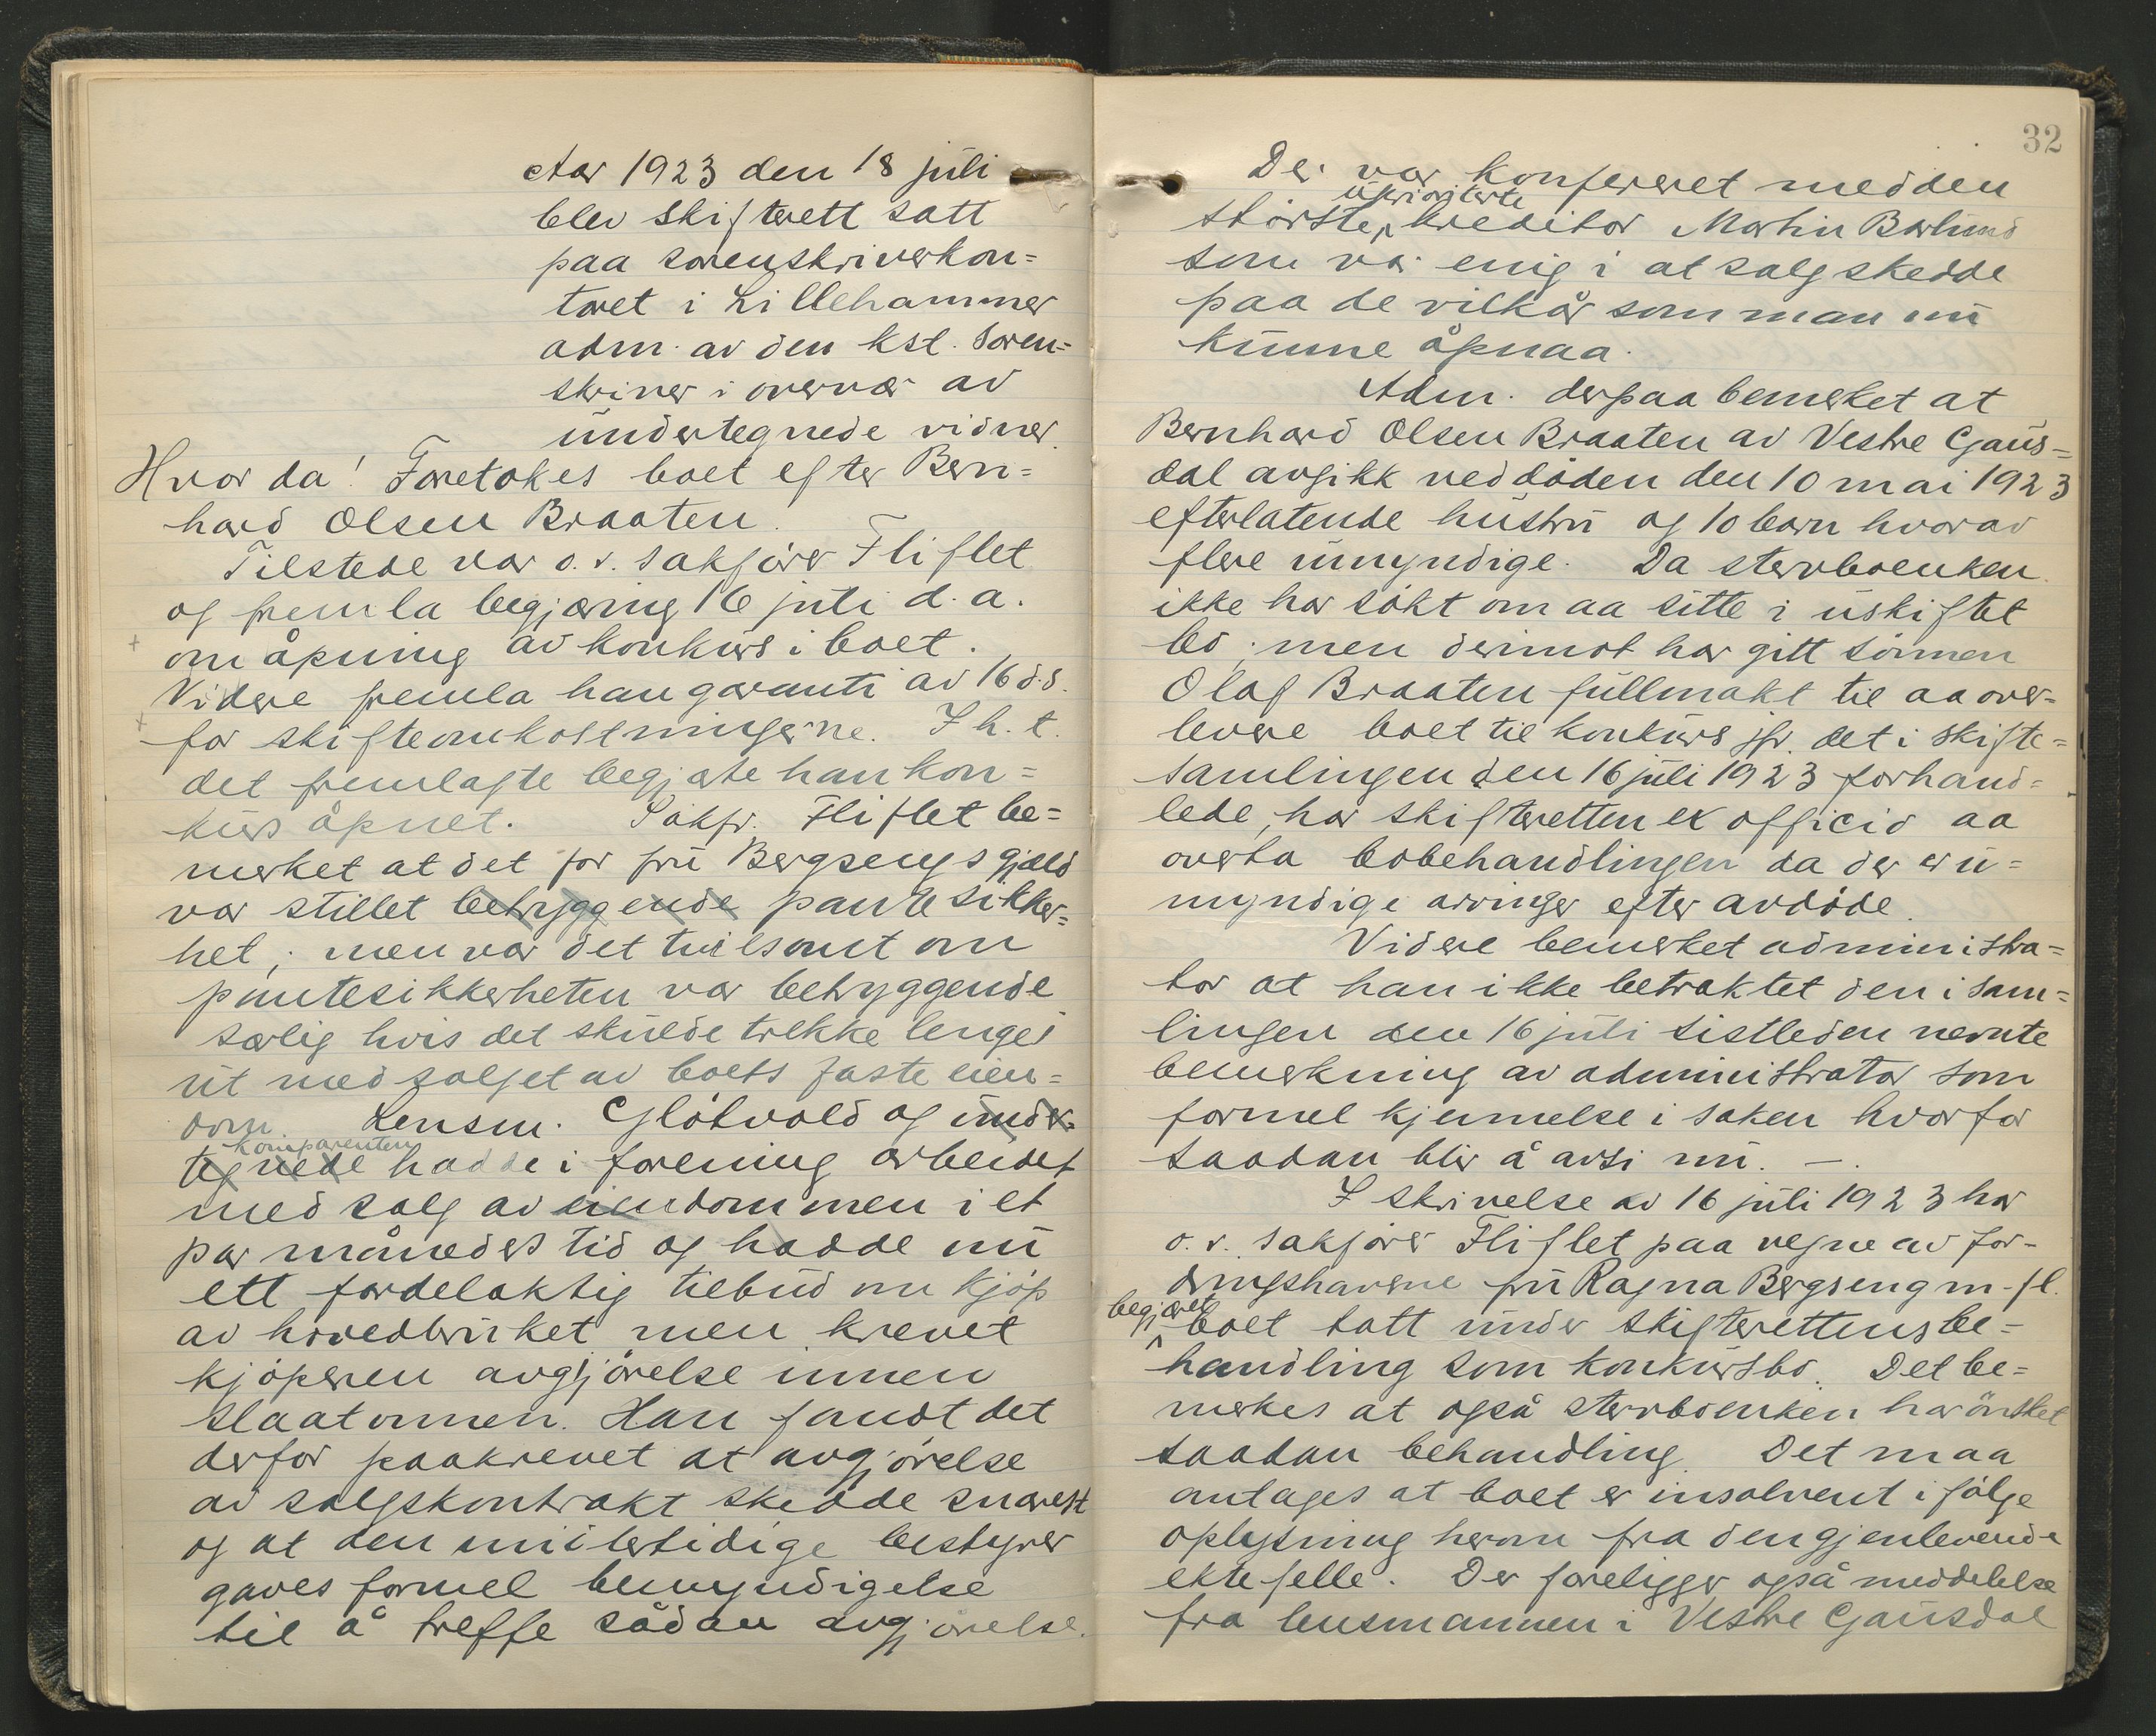 Aar 1923 den 18 juli
blev skifterett satt
paa sorenskriverkon=
toret i Lillehammer
adm. av den kst. soren=
skriver i overvær av
undertegnede vidner.
Hvor da! Foretokes boet efter Bern=
hard Olsen Braaten.
Tilstede var o.r. sakfører Fliflet
og fremla begjæring 16 juli d.a.
om åpning av konkurs i boet.
Videre fremla han garanti av 16 d.s.
for skifteomkostningerne. I h. t.
det fremlagte begjærte han kon=
kurs åpnet. Sakfr. Fliflet be=
merket at det for fru Bergsengs gjæld
var stillet betryggende pantesikker=
het; men var det tvilsomt om
pantesikkerheten var betryggende
særlig hvis det skulde trekke lenge
ut med salget av boets faste eien=
dom. Lensm. Glötvold og under=
komparenten
tegnede hadde i forening arbeidet
med salg av eiendommen i et
par måneders tid og hadde nu
ett fordelaktig tilbud om kjöp
av hovedbruket men krevet
kjöperen avgjörelse innen
slaatonnen. Han fandt det
derfor paakrevet at avgjörelse
av salgskontrakt skedde snarest
og at den midlertidige bestyrer
gaves formel bemyndigelse
til å treffe sådan avgjörelse.
32
Der var konfereret med den
uprioriterte
störste kreditor Martin Barlund
som var enig i at salg skedde
paa de vilkår som man nu
kunne åpnaa.
Adm. derpaa bemerket at
Bernhard Olsen Braaten av Vestre Gaus=
dal avgikk ved döden den 10 mai 1923
efterlatende hustru og 10 barn hvorav
flere umyndige. Da stervboenken
ikke har sökt om aa sitte i uskiftet
bo, men derimot har gitt sönnen
Olaf Braaten fullmakt til aa over=
levere boet til konkurs jfr. det i skifte=
samlingen den 16 juli 1923 forhand=
lede, har skifteretten ex officio aa
overta bobehandlingen da der er u=
myndige arvinger efter avdöde.
Videre bemerket administra=
tor at han ikke betraktet den i sam=
lingen den 16 juli sistleden nevnte
bemerkning av administrator som
formel kjennelse i saken hvorfor
saadan blir å avsi nu. —.
I skrivelse av 16 juli 1923 har
o.r. sakförer Fliflet paa vegne av for=
dringshaverne fru Ragna Bergseng m. fl.
begjæret
boet tatt under skifterettens be=
handling som konkursbo. Det be=
merkes at også stervboenken har önsket
saadan behandling. Det maa
antages at boet er insolvent i fölge
oplysning herom fra den gjenlevende
ektefelle. Der foreligger også meddelelse
fra lensmannen i Vestre Gausdal